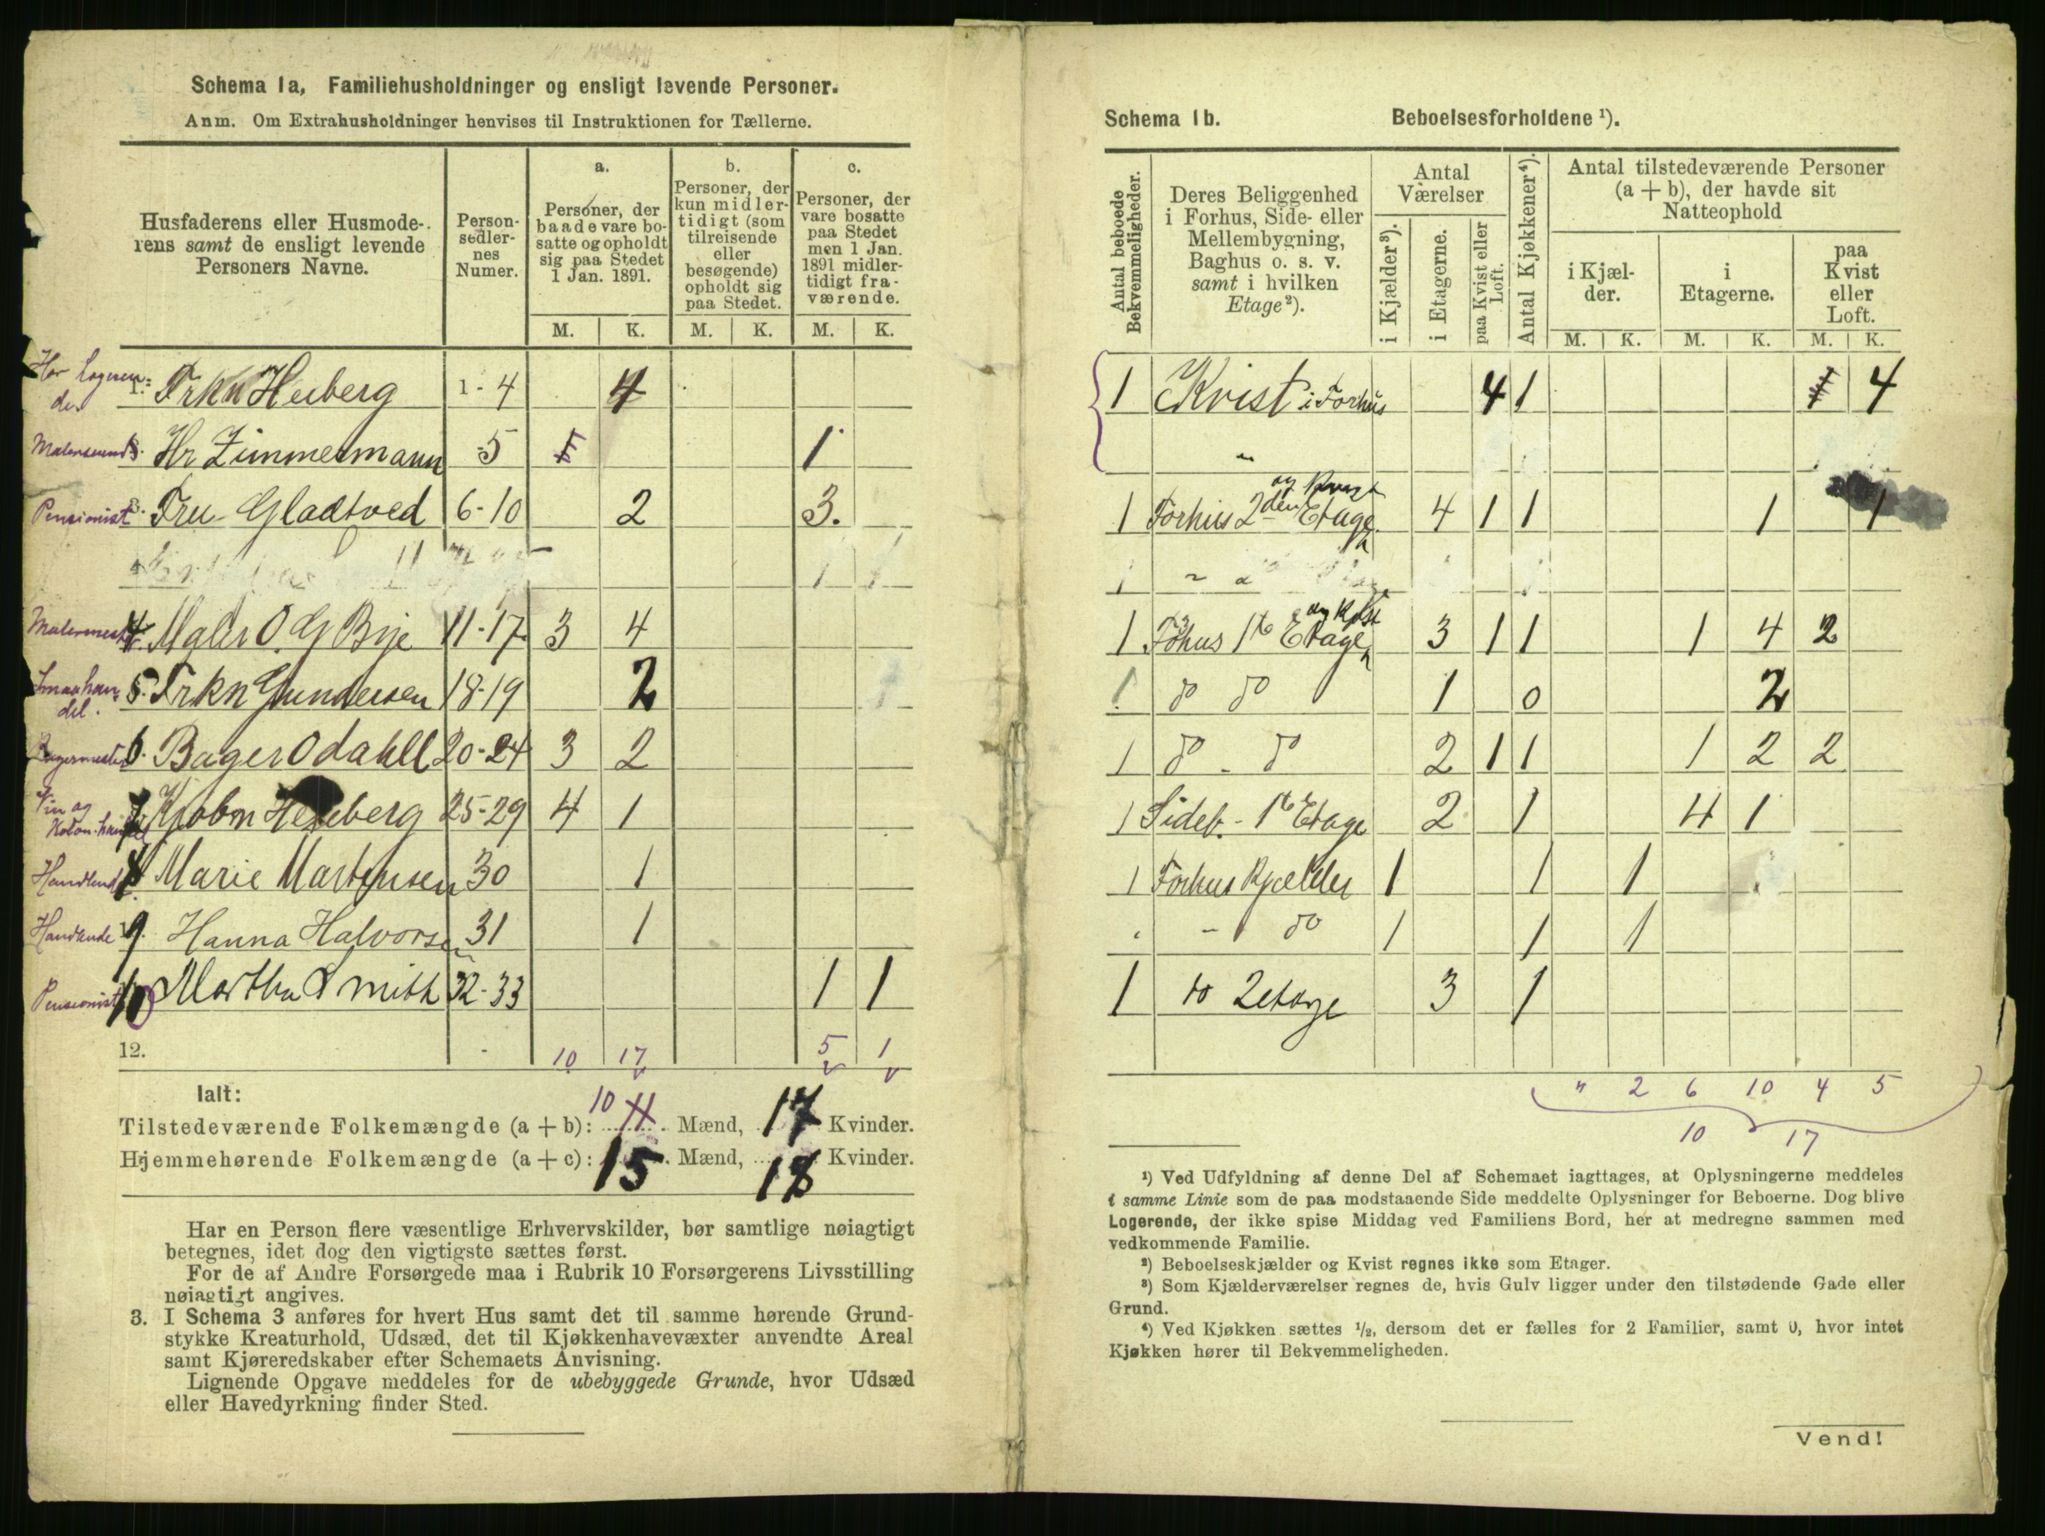 Schema 1a, Familiehusholdninger og ensligt levende Personer.
Anm. Om Extrahusholdninger henvises til Instruktionen for Tællerne.
Husfaderens eller Husmoderens samt de ensligt levende Personers Navne.
Personsedlernes Numer.
a. Personer, der baade vare bosatte og opholdt sig paa Stedet 1 Jan. 1891.
b. Personer, der kun midlertidigt (som tilreisende eller besøgende) opholdt sig paa Stedet.
c. Personer, der vare bosatte paa Stedet men 1 Jan. 1891 midlertidigt fraværende.
M. K. M. K. M. K.
Har Logerende 1. Frkn Heiberg 1-4 4
Hr Zimmermann 5 1
Pensionist 3. Fru Gladtved 6-10 2 3.
Malermester 4. Maler O. G Bye 11-17 3 4
Smaahandel. 5. Frkn Gundersen 18-19 2
Bagermester 6. Bager Odahll 20-24 3 2
Vin og Kolon. handel 7 Kjøbm Heiberg 25-29 4 1
Handlende 8 Marie Martinsen 30 1
Handlende 9. Hanna Halvorsen 31 1
Pensionist 10 Martha Smith 32-33 1 1
12. 10 17 5 1
Ialt:
Tilstedeværende Folkemængde (a + b): 10 11 Mænd, 17 Kvinder.
Hjemmehørende Folkemængde (a + c): 15 Mænd, 18 Kvinder.
Har en Person flere væsentlige Erhvervskilder, bør samtlige nøiagtigt
betegnes, idet dog den vigtigste sættes først.
For de af Andre Forsørgede maa i Rubrik 10 Forsørgerens Livsstilling
nøiagtigt angives.
3. I Schema 3 anføres for hvert Hus samt det til samme hørende Grund-
stykke Kreaturhold, Udsæd, det til Kjøkkenhavevæxter anvendte Areal
samt Kjøreredskaber efter Schemaets Anvisning.
Lignende Opgave meddeles for de ubebyggede Grunde, hvor Udsæd
eller Havedyrkning finder Sted.
Schema 1b. Beboelsesforholdene ¹).
Antal beboede Bekvemmeligheder.
Deres Beliggenhed i Forhus, Side- eller Mellembygning, Baghus o. s. v. samt i hvilken Etage ²).
Antal Værelser
i Kjælder ³).
i Etagerne.
paa Kvist eller Loft.
Antal Kjøkkener ⁴).
Antal tilstedeværende Personer (a + b), der havde sit Natteophold
i Kjælder.
i Etagerne.
paa Kvist eller Loft.
M. K. M. K. M. K.
1 Kvist i Forhus 4 1 4
"
1 Forhus 2den Etage og Kvist 4 1 1 1 1
1 Fohus 1te Etage og Kvist 3 1 1 1 4 2
1 do do 1 0 2
1 do - do 2 1 1 1 2 2
1 Sideb. - 1te Etage 2 1 4 1
1 Forhus Kjelder 1 1 1
" do 1 1 1
1 do 2 etage 3 1
" 2 6 10 4 5
10 17
¹) Ved Udfyldning af denne Del af Schemaet iagttages, at Oplysningerne meddeles
i samme Linie som de paa modstaaende Side meddelte Oplysninger for Beboerne. Dog blive
Logerende, der ikke spise Middag ved Familiens Bord, her at medregne sammen med
vedkommende Familie.
²) Beboelseskjælder og Kvist regnes ikke som Etager.
³) Som Kjælderværelser regnes de, hvis Gulv ligger under den tilstødende Gade eller
Grund.
⁴) Ved Kjøkken sættes ½, dersom det er fælles for 2 Familier, samt 0, hvor intet
Kjøkken hører til Bekvemmeligheden.
Vend!